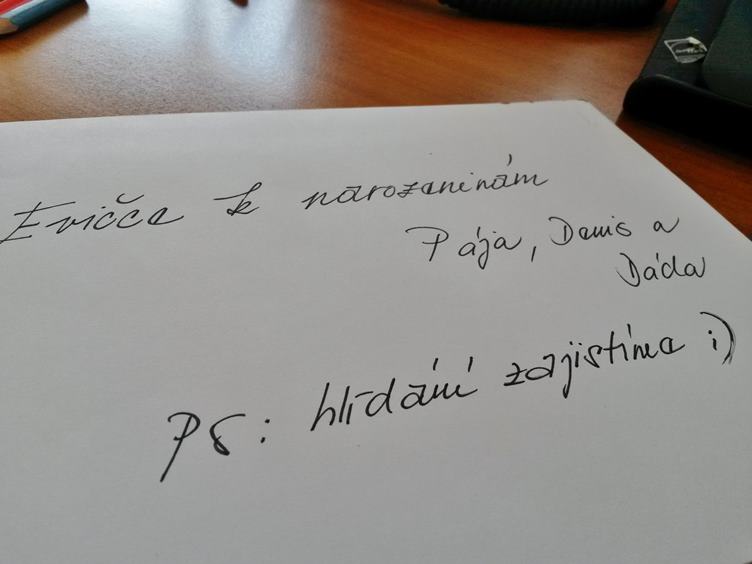 Evičce k narozeninám
Pája, Denis a
Dáda
PS: hlídání zajistíme ;)